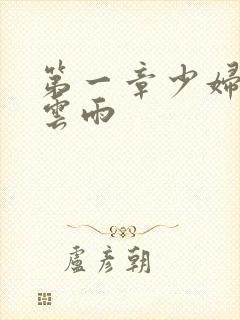 第一章少婦
雲雨
盧彥朝